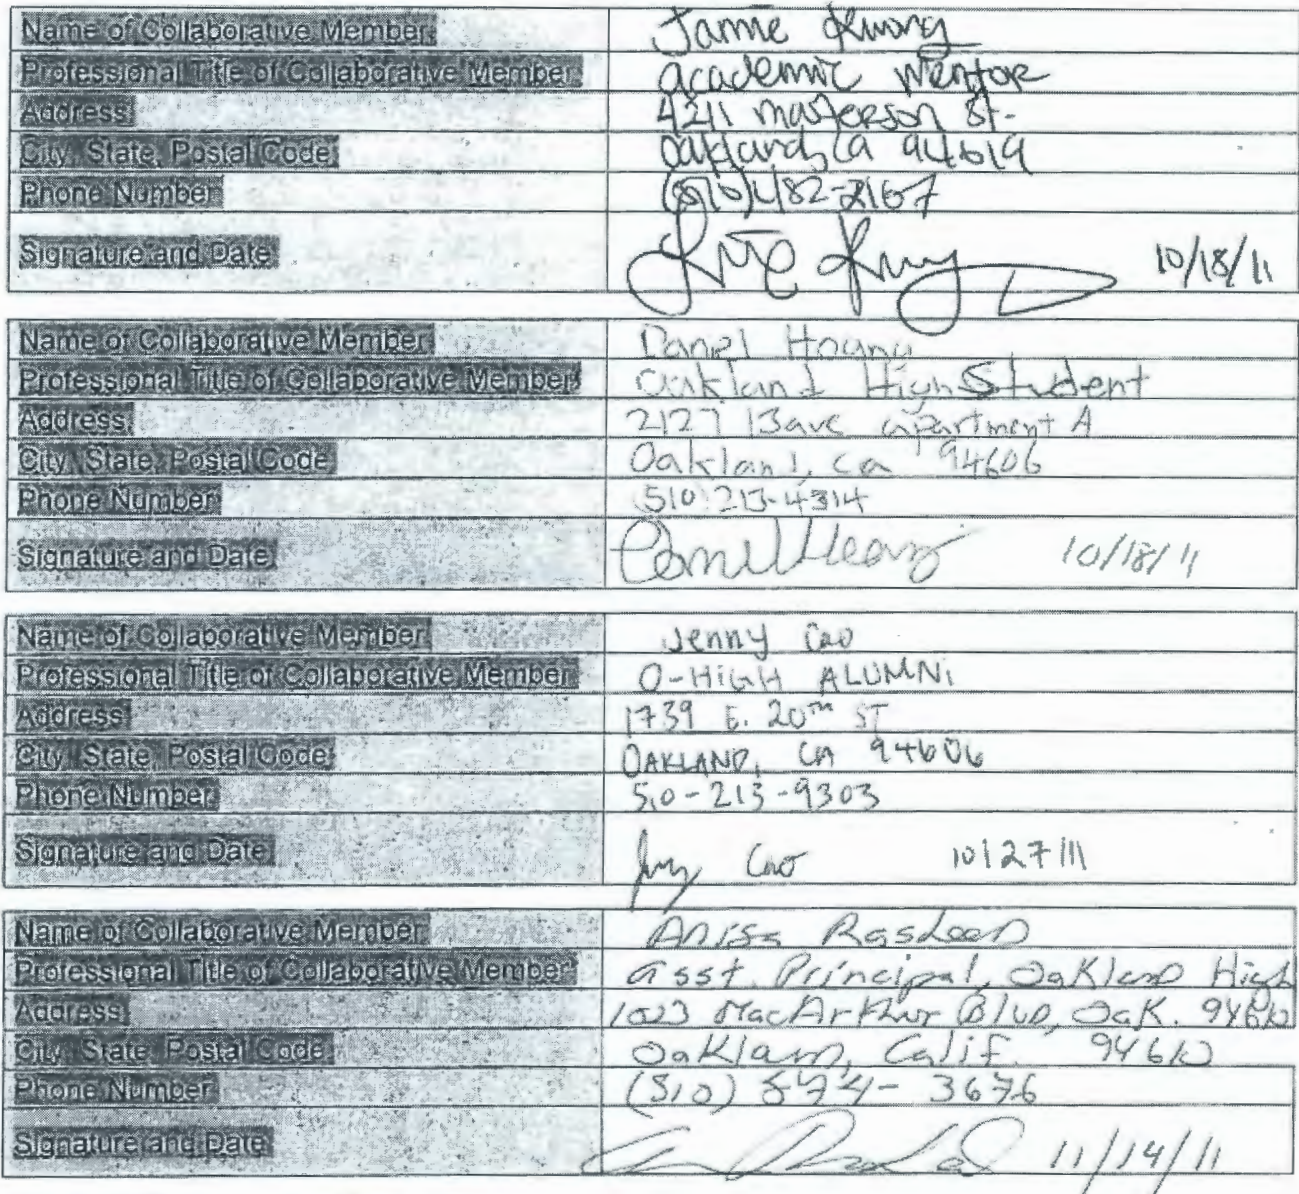 Name of Collaborative Member Jamie Kwong
Professional Title of Collaborative Member academic mentor
Address 4211 masterson st.
City, State, Postal Code Oakland, ca 94619
Phone Number (510)482-2167
Signature and Date 10/18/11
Name of Collaborative Member Daniel Hoang
Professional Title of Collaborative Member Oakland High Student
Address 2127 13ave apartment A
City, State, Postal Code Oakland, ca 94606
Phone Number 510 213-4314
Signature and Date 10/18/11
Name of Collaborative Member Jenny Cao
Professional Title of Collaborative Member O-HIGH ALUMNi
Address 1739 E. 20TH ST
City, State, Postal Code OAKLAND, CA 94606
Phone Number 510-213-9303
Signature and Date Cao 10/27/11
Name of Collaborative Member Anisa Rasheed
Professional Title of Collaborative Member Asst. Principal, Oakland High
Address 1023 MacArthur Blvd, Oak. 94610
City, State, Postal Code Oakland, Calif. 94610
Phone Number (510) 874-3676
Signature and Date 11/14/11